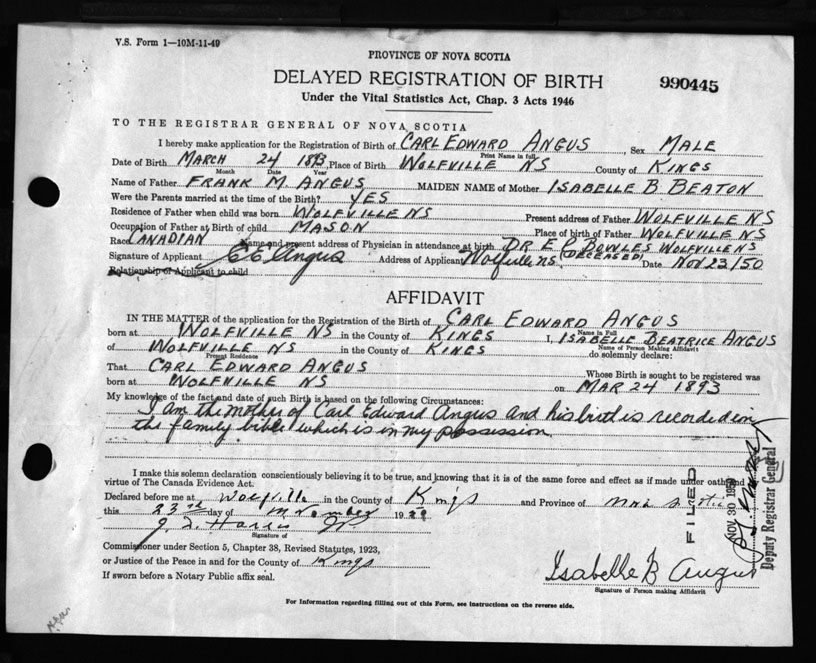 V.S. Form 1—10M-11-49
PROVINCE OF NOVA SCOTIA
DELAYED REGISTRATION OF BIRTH
990445
Under the Vital Statistics Act, Chap. 3 Acts 1946
TO THE REGISTRAR GENERAL OF NOVA SCOTIA
I hereby make application for the Registration of Birth of CARL EDWARD ANGUS, Sex MALE
Print Name in full
Date of Birth MARCH 24 1893, Place of Birth WOLFVILLE NS County of KINGS
Month Date Year
Name of Father FRANK M. ANGUS MAIDEN NAME of Mother ISABELLE B BEATON
Were the Parents married at the time of the Birth? YES
Residence of Father when child was born WOLFVILLE NS Present address of Father WOLFVILLE NS
Occupation of Father at Birth of child MASON Place of birth of Father WOLFVILLE NS
Race CANADIAN Name and present address of Physician in attendance at birth DR E P BOWLES WOLFVILLE NS
(DECEASED)
Signature of Applicant C E Angus Address of Applicant Wolfville NS, Date NOV 23/50
Relationship of Applicant to child
AFFIDAVIT
IN THE MATTER of the application for the Registration of the Birth of CARL EDWARD ANGUS
Name in Full
born at WOLFVILLE NS in the County of KINGS I, ISABELLE BEATRICE ANGUS
Name of Person Making Affidavit
of WOLFVILLE NS in the County of KINGS do solemnly declare:
Present Residence
That CARL EDWARD ANGUS Whose Birth is sought to be registered was
born at WOLFVILLE NS on MAR 24 1893
My knowledge of the fact and date of such Birth is based on the following Circumstances:
I am the mother of Carl Edward Angus and his birth is recorded in
the family bible which is in my possession
I make this solemn declaration conscientiously believing it to be true, and knowing that it is of the same force and effect as if made under oath and
virtue of The Canada Evidence Act.
Declared before me at Wolfville in the County of Kings and Province of Nova Scotia
this 23rd day of November 19
Signature of
Commissioner under Section 5, Chapter 38, Revised Statutes, 1923,
or Justice of the Peace in and for the County of Kings
If sworn before a Notary Public affix seal.
Isabelle B Angus
Signature of Person making Affidavit
FILED
NOV 30 1950
Deputy Registrar General
For Information regarding filling out of this Form, see instructions on the reverse side.